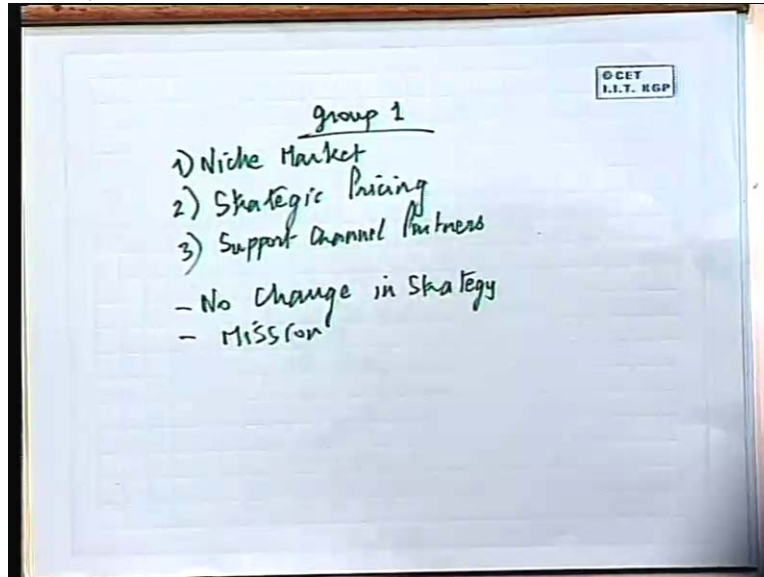 © CET
I.I.T. KGP
group 1
1) Niche Market
2) Strategic Pricing
3) Support Channel Partners
- No Change in Strategy
- Mission